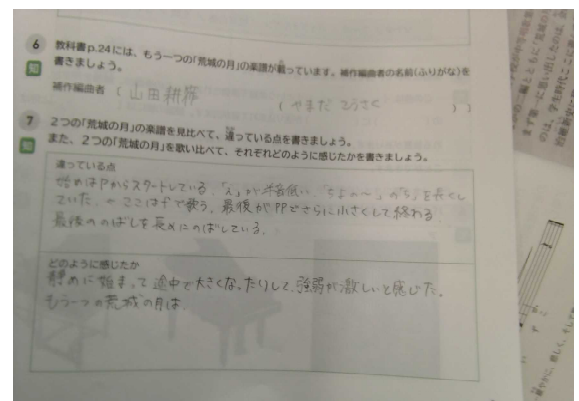 6 教科書p.24には、もう一つの「荒城の月」の楽譜が載っています。補作編曲者の名前(ふりがな)を
知 書きましょう。
補作編曲者 ( 山田耕筰 ( やまだ こうさく ) )
7 2つの「荒城の月」の楽譜を見比べて、違っている点を書きましょう。
知 また、2つの「荒城の月」を歌い比べて、それぞれどのように感じたかを書きましょう。
違っている点
始めはPからスタートしている、「え」が半音低い、「ちよの〜」の「ち」を長くし
ていた。 ここはfで歌う、最後がPPでさらに小さくして終わる
最後ののばしを長めにのばしている。
どのように感じたか
静めに始まって途中で大きくなったりして、強弱が激しいと感じた。
もう一つの荒城の月は